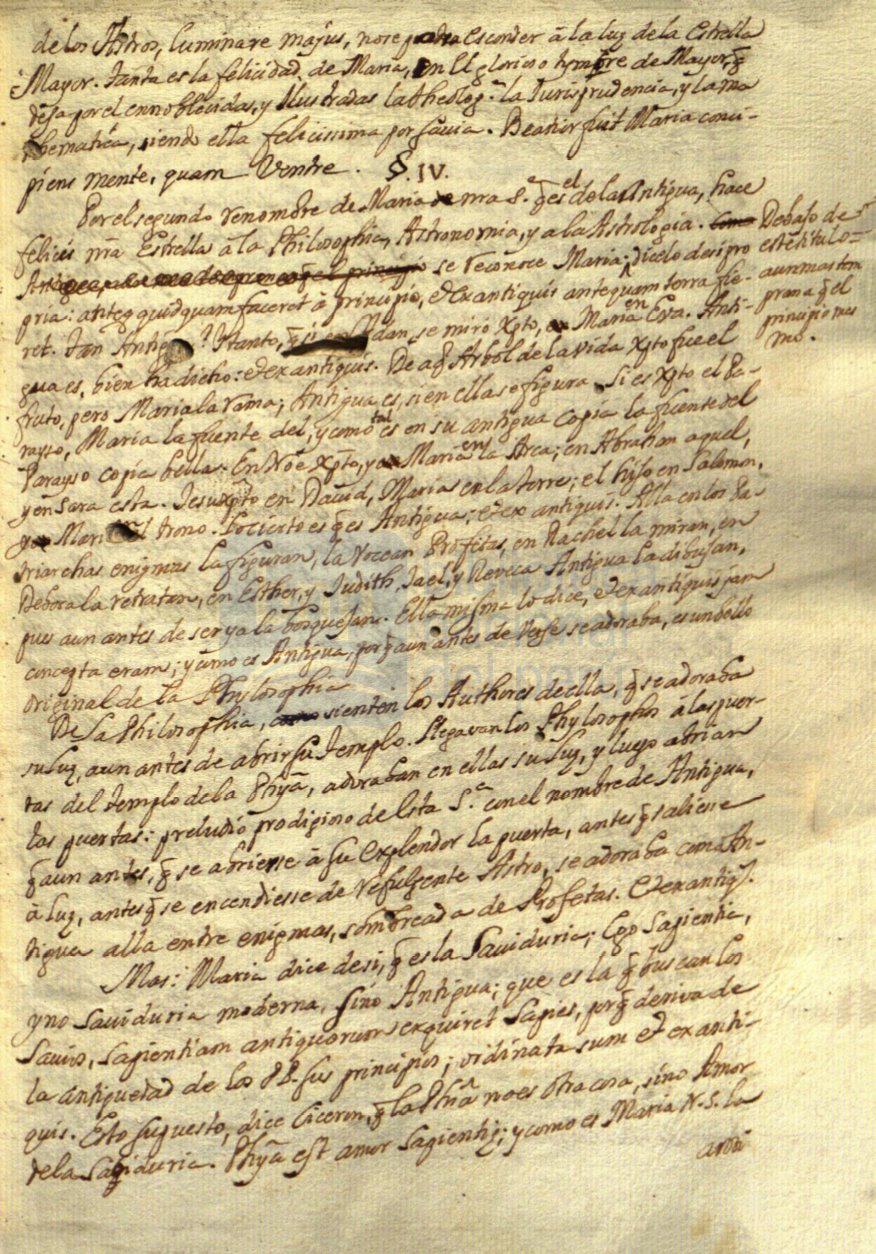 de los Astros, luminare majus, no se podra esconder â la luz de la Estrella
Mayor. Tanta es la felicidad de Maria, en el glorioso tymbre de Mayor, q̃
deja por el ennoblecidas, y Ilustradas la theolog.ª la Jurisprudencia, y la ma
thematica, siendo ella felicissima por sauia. Beatior fuit Maria conci-
piens mente, quam Ventre. §. IV.
Por el segundo renombre de Maria nr̃a S.ª q̃ es el de la Antigua, hace
felices nr̃a Estrella â la Philosophia, Astronomia, y a la Astrologia.
se reconoce Maria; dicelo de si pro
pria: anteq̃ quidquam faceret â principio, et ex antiquis antequam terra fie-
ret. Tan Antigua? Y tanto, q̃ si en Adan, se miro Xp̃to, Maria en Eva. Anti-
gua es, bien ha dicho: et ex antiquis. De aq̃l Arbol de la vida Xp̃to fue el
fruto, pero Maria la rama; Antigua es, si en ellas se figura. Si es Xp̃to el Pa-
rayso, Maria la fuente del, y como tal es en su antigua copia la fuente del
Parayso copia bella. En Noe Xp̃to, y Maria en la Arca; en Abraham aquel,
y en Sara esta. Jesuxp̃to en David, Maria en la torre; el hijo en Salomon,
y Maria el trono. Lo cierto es q̃ es Antigua; et ex antiquis. Alla en los Pa-
triarchas enigmas la figuran, la vocean Profetas, en Rachel la miran, en
Debora la retratan, en Esther, y Judith, Jael, y Reveca Antigua la dibujan,
pues aun antes de ser ya la bosquejan. Ella misma lo dice, et ex antiquis jam
concepta eram; y como es Antigua, porq̃ aun antes de verse se adoraba, es un bello
original de la Phylosophia
De la Philosophia, sienten los Authores de ella, q̃ se adoraba
su luz, aun antes de abrir su Templo. Llegavan los Phylosophos â las puer-
tas del Templo de la Phyã, adoraban en ellas su luz, y luego abrian
las puertas: preludio prodigioso de esta S.ª con el nombre de Antigua,
q̃ aun antes, q̃ se abriesse â su explendor la puerta, antes q̃ saliesse
â luz, antes q̃ se encendiesse de refulgente Astro, se adoraba como An-
tigua alla entre enigmas, sombreada de Profetas. Et ex antiq̃s.
Mas: Maria dice de si, q̃ es la Sauiduria; Ego Sapientia,
y no Sauiduria moderna, sino Antigua; que es la q̃ buscan los
Sauios, Sapientiam antiquorum exquiret Sapiens, porq̃ deriva de
la antiguedad de los PP. sus principios; ordinata sum et ex anti-
quis. Esto supuesto, dice Ciceron, q̃ la Phiã no es otra cosa, sino Amor
de la Sauiduria. Phyã est amor Sapientiæ; y como es Maria N. S. la
Debajo de
este titulo
aun mas tem
prana q̃ el
principio mes
mo.